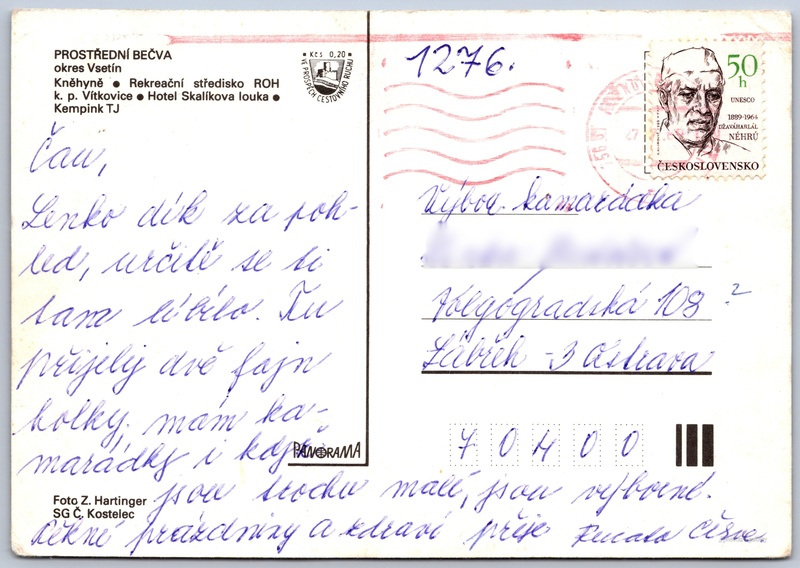 PROSTŘEDNÍ BEČVA
okres Vsetín
Kněhyně ● Rekreační středisko ROH
k. p. Vítkovice ● Hotel Skalíkova louka ●
Kempink TJ
Kčs 0,20
VE PROSPĚCH CESTOVNÍHO RUCHU
1276.
50 h
UNESCO
1889-1964
DŽAVÁHARLÁL
NÉHRÚ
ČESKOSLOVENSKO
Čau,
Lenko dík za poh-
led, určitě se ti
tam líbilo. Tu
přijely dvě fajn
holky, mám ka-
marádky i když
jsou trochu malé, jsou výborné.
Pěkné prázdniny a zdraví přeje Renata
Výbor. kamarádka
Volgogradská 108 ?
Zábřeh -3 Ostrava
70400
PANORAMA
Foto Z. Hartinger
SG Č. Kostelec